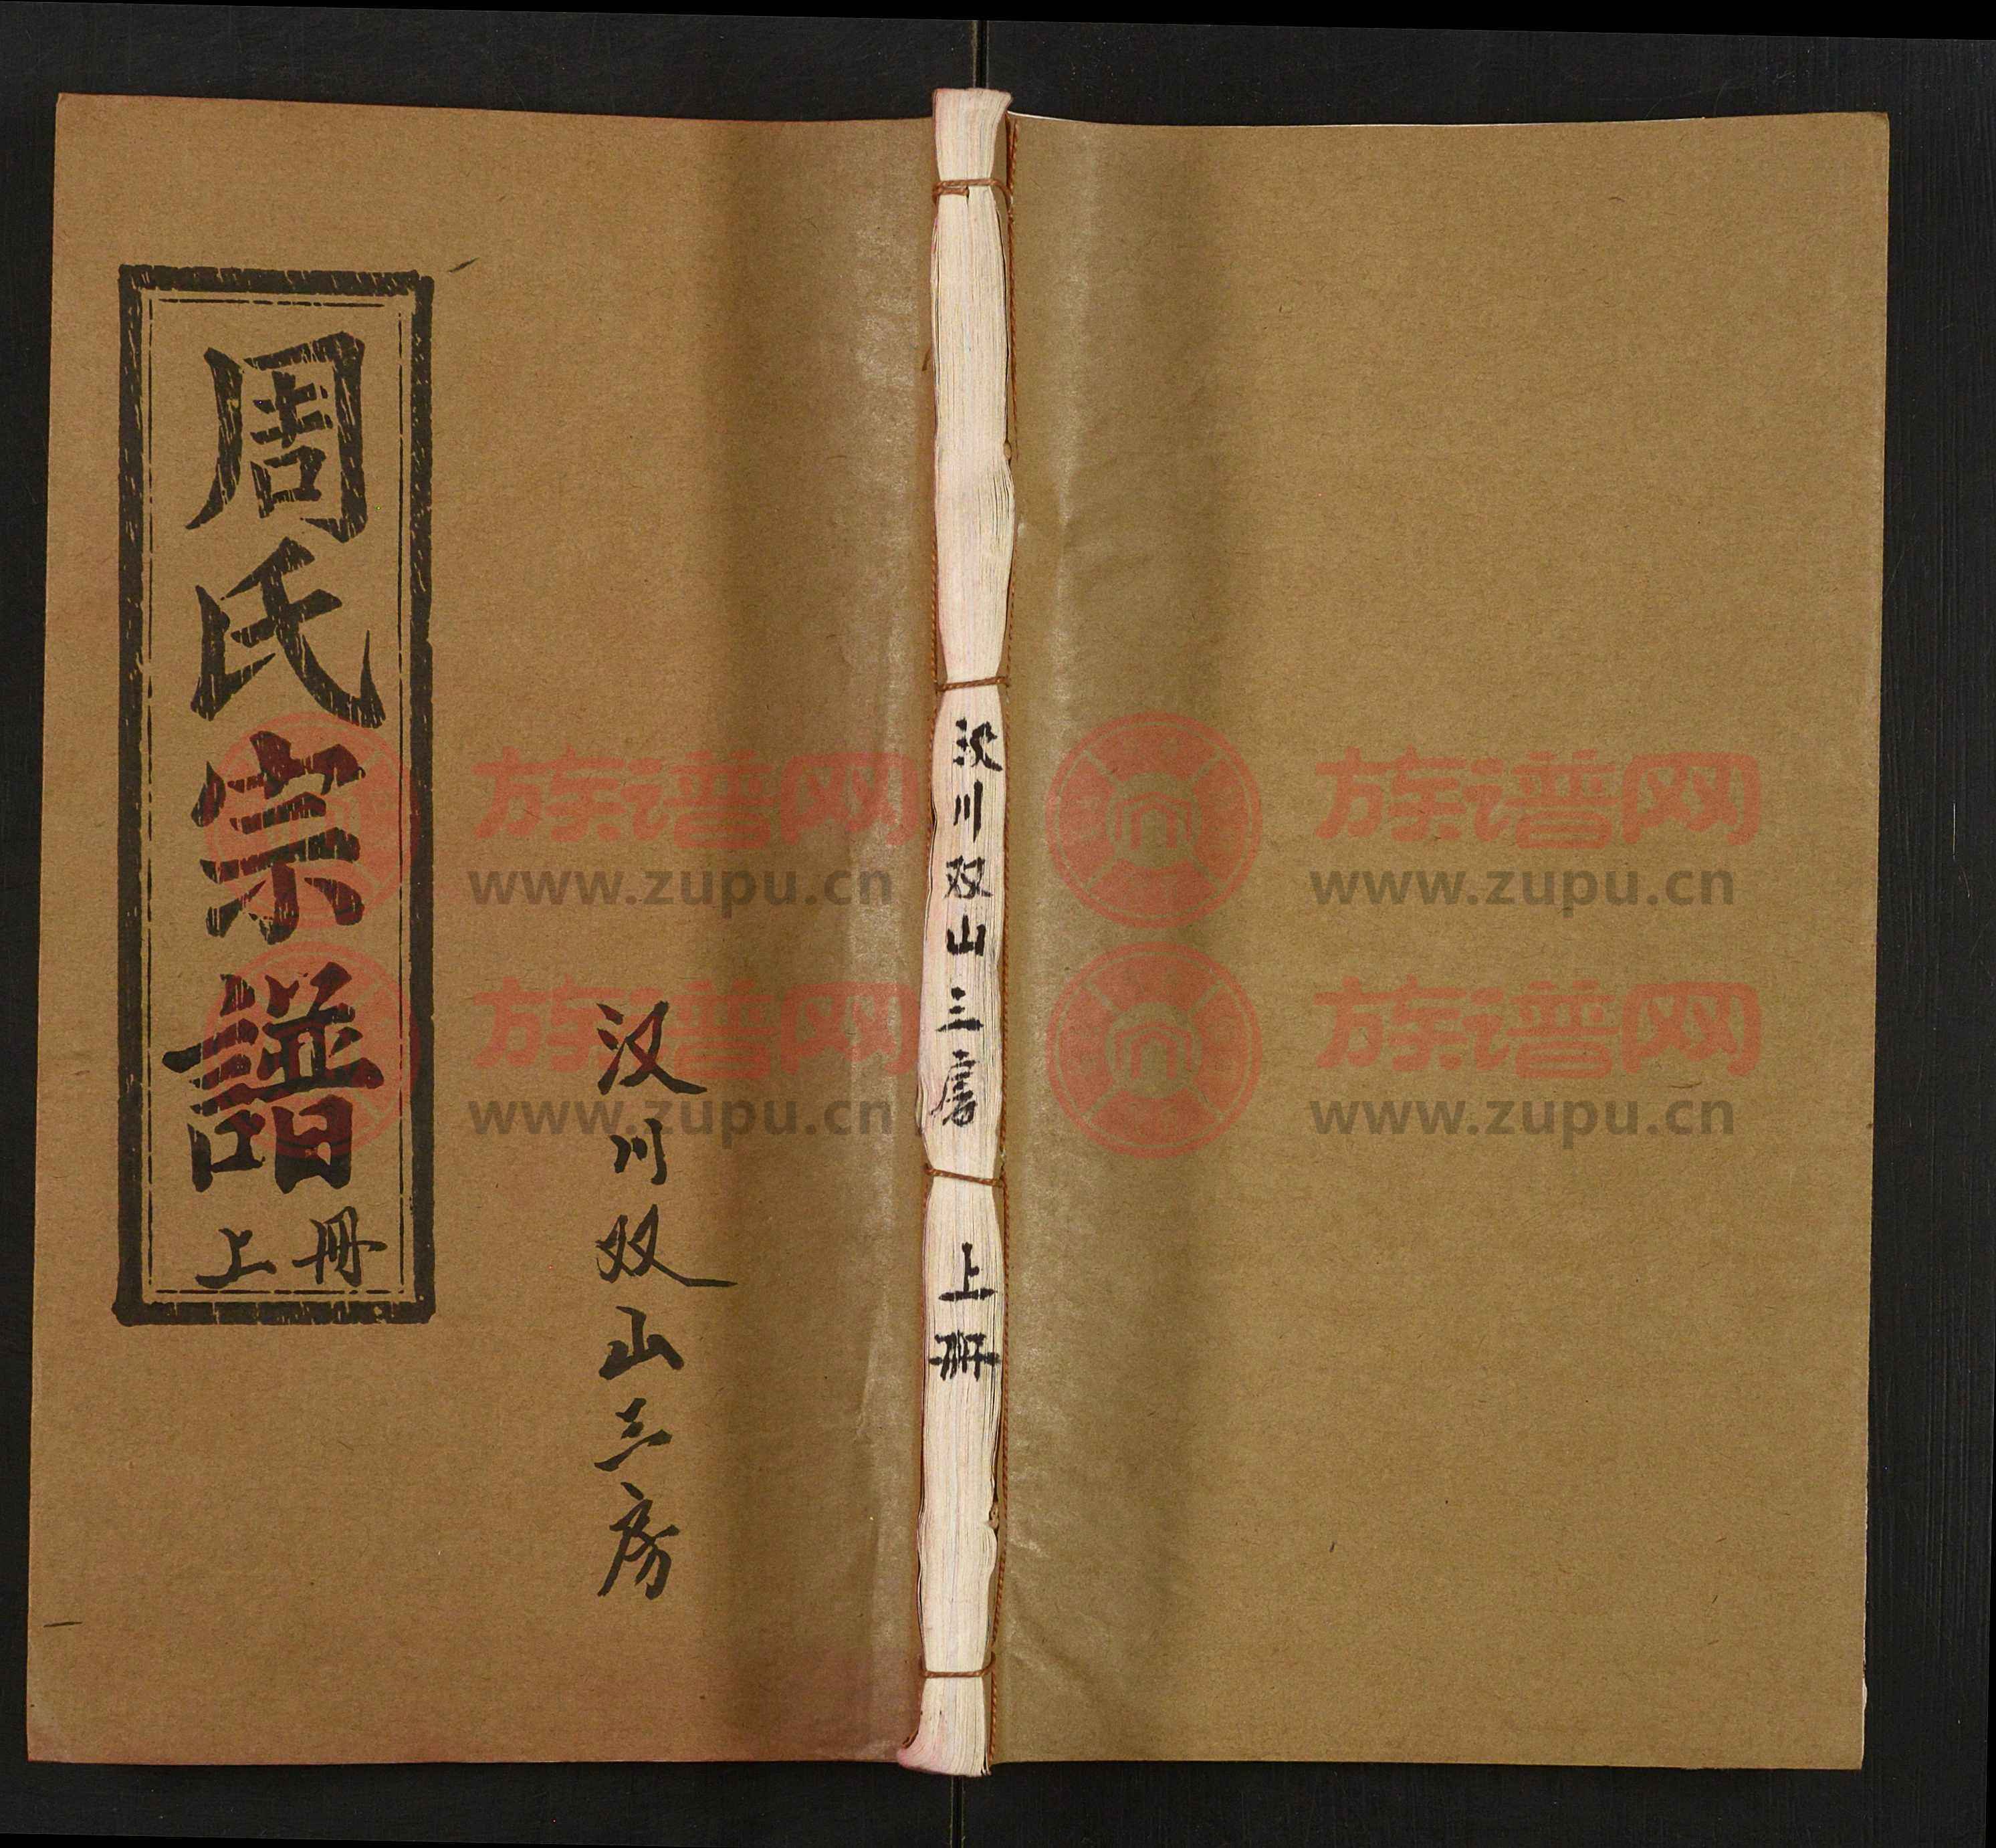 周氏宗譜
上冊
汉川双山三房
汉川双山三房
上册
族谱网
www.zupu.cn
族谱网
www.zupu.cn
族谱网
www.zupu.cn
族谱网
www.zupu.cn